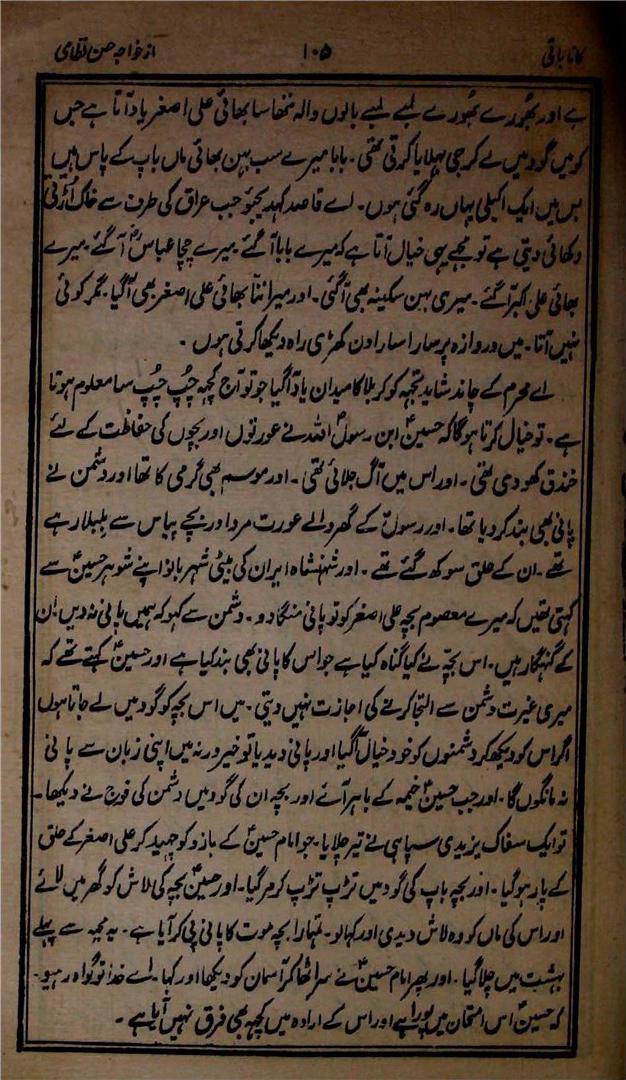 کانا باتی ۱۰۵ از خواجہ حسن نظامی
ہے اور بھورے بھورے لمبے لمبے بالوں والہ ننھا سا بھائی علی اصغر یاد آتا ہے جس
کو میں گود میں لے کر جی بہلایا کرتی تھی۔ بابا میرے سب بہن بھائی ماں باپ کے پاس ہیں
بس میں ایک اکیلی یہاں رہ گئی ہوں۔ اے قاصد کہدیجیو جب عراق کی طرف سے خاک اُڑتی
دکھائی دیتی ہے تو مجھے یہی خیال آتا ہے کہ میرے بابا آگئے۔ میرے چچا عباسؑ آگئے۔ میرے
بھائی علی اکبر آگئے۔ میری بہن سکینہ بھی آگئی۔ اور میرا ننّا بھائی علی اصغر بھی آگیا۔ مگر کوئی
نہیں آتا۔ میں دروازہ پر سارا سارا دن کھڑی راہ دیکھا کرتی ہوں۔
اے محرم کے چاند شاید تجھہ کو کربلا کا میدان یاد آگیا جو تو آج کچھہ چُپ چُپ سا معلوم ہوتا
ہے۔ تو خیال کرتا ہوگا کہ حسینؑ ابن رسولؐ اللہ نے عورتوں اور بچوں کی حفاظت کے لئے
خندق کھودی تھی۔ اور اس میں آگ جلائی تھی۔ اور موسم بھی گرمی کا تھا اور دشمن نے
پانی بھی بند کر دیا تھا۔ اور رسولؐ کے گھر والے عورت مرد اور بچے پیاس سے بلبلا رہے
تھے۔ ان کے حلق سوکھ گئے تھے۔ اور شہنشاہ ایران کی بیٹی شہر بانو اپنے شوہر حسینؑ سے
کہتی تھیں کہ میرے معصوم بچہ علی اصغر کو تو پانی منگا دو۔ دشمن سے کہو کہ ہمیں پانی نہ دیں ان
کے گنہگار ہیں۔ اس بچّہ نے کیا گناہ کیا ہے جو اس کا پانی بھی بند کیا ہے اور حسینؑ کہتے تھے کہ
میری غیرت دشمن سے التجا کرنے کی اجازت نہیں دیتی۔ میں اس بچہ کو گود میں لے جاتا ہوں
اگر اس کو دیکھہ کر دشمنوں کو خود خیال آگیا اور پانی دیدیا تو خیر ورنہ میں اپنی زبان سے پانی
نہ مانگوں گا۔ اور جب حسینؑ خیمہ کے باہر آئے اور بچہ ان کی گود میں دشمن کی فوج نے دیکھا۔
تو ایک سفاک یزیدی سپاہی نے تیر چلایا۔ جو امام حسینؑ کے بازو کو چھید کر علی اصغر کے حلق
کے پار ہوگیا۔ اور بچہ باپ کی گود میں تڑپ تڑپ کر مر گیا۔ اور حسینؑ بچہ کی لاش کو گھر میں لائے
اور اس کی ماں کو وہ لاش دیدی اور کہا لو۔ تمہارا بچہ موت کا پانی پی کر آیا ہے۔ یہ مجھہ سے پہلے
بہشت میں چلا گیا۔ اور پھر امام حسینؑ نے سر اٹھا کر آسمان کو دیکھا اور کہا۔ اے خدا تو گواہ رہیو۔
کہ حسینؑ اس امتحان میں پورا ہے اور اس کے ارادہ میں کچھہ بھی فرق نہیں آیا ہے۔